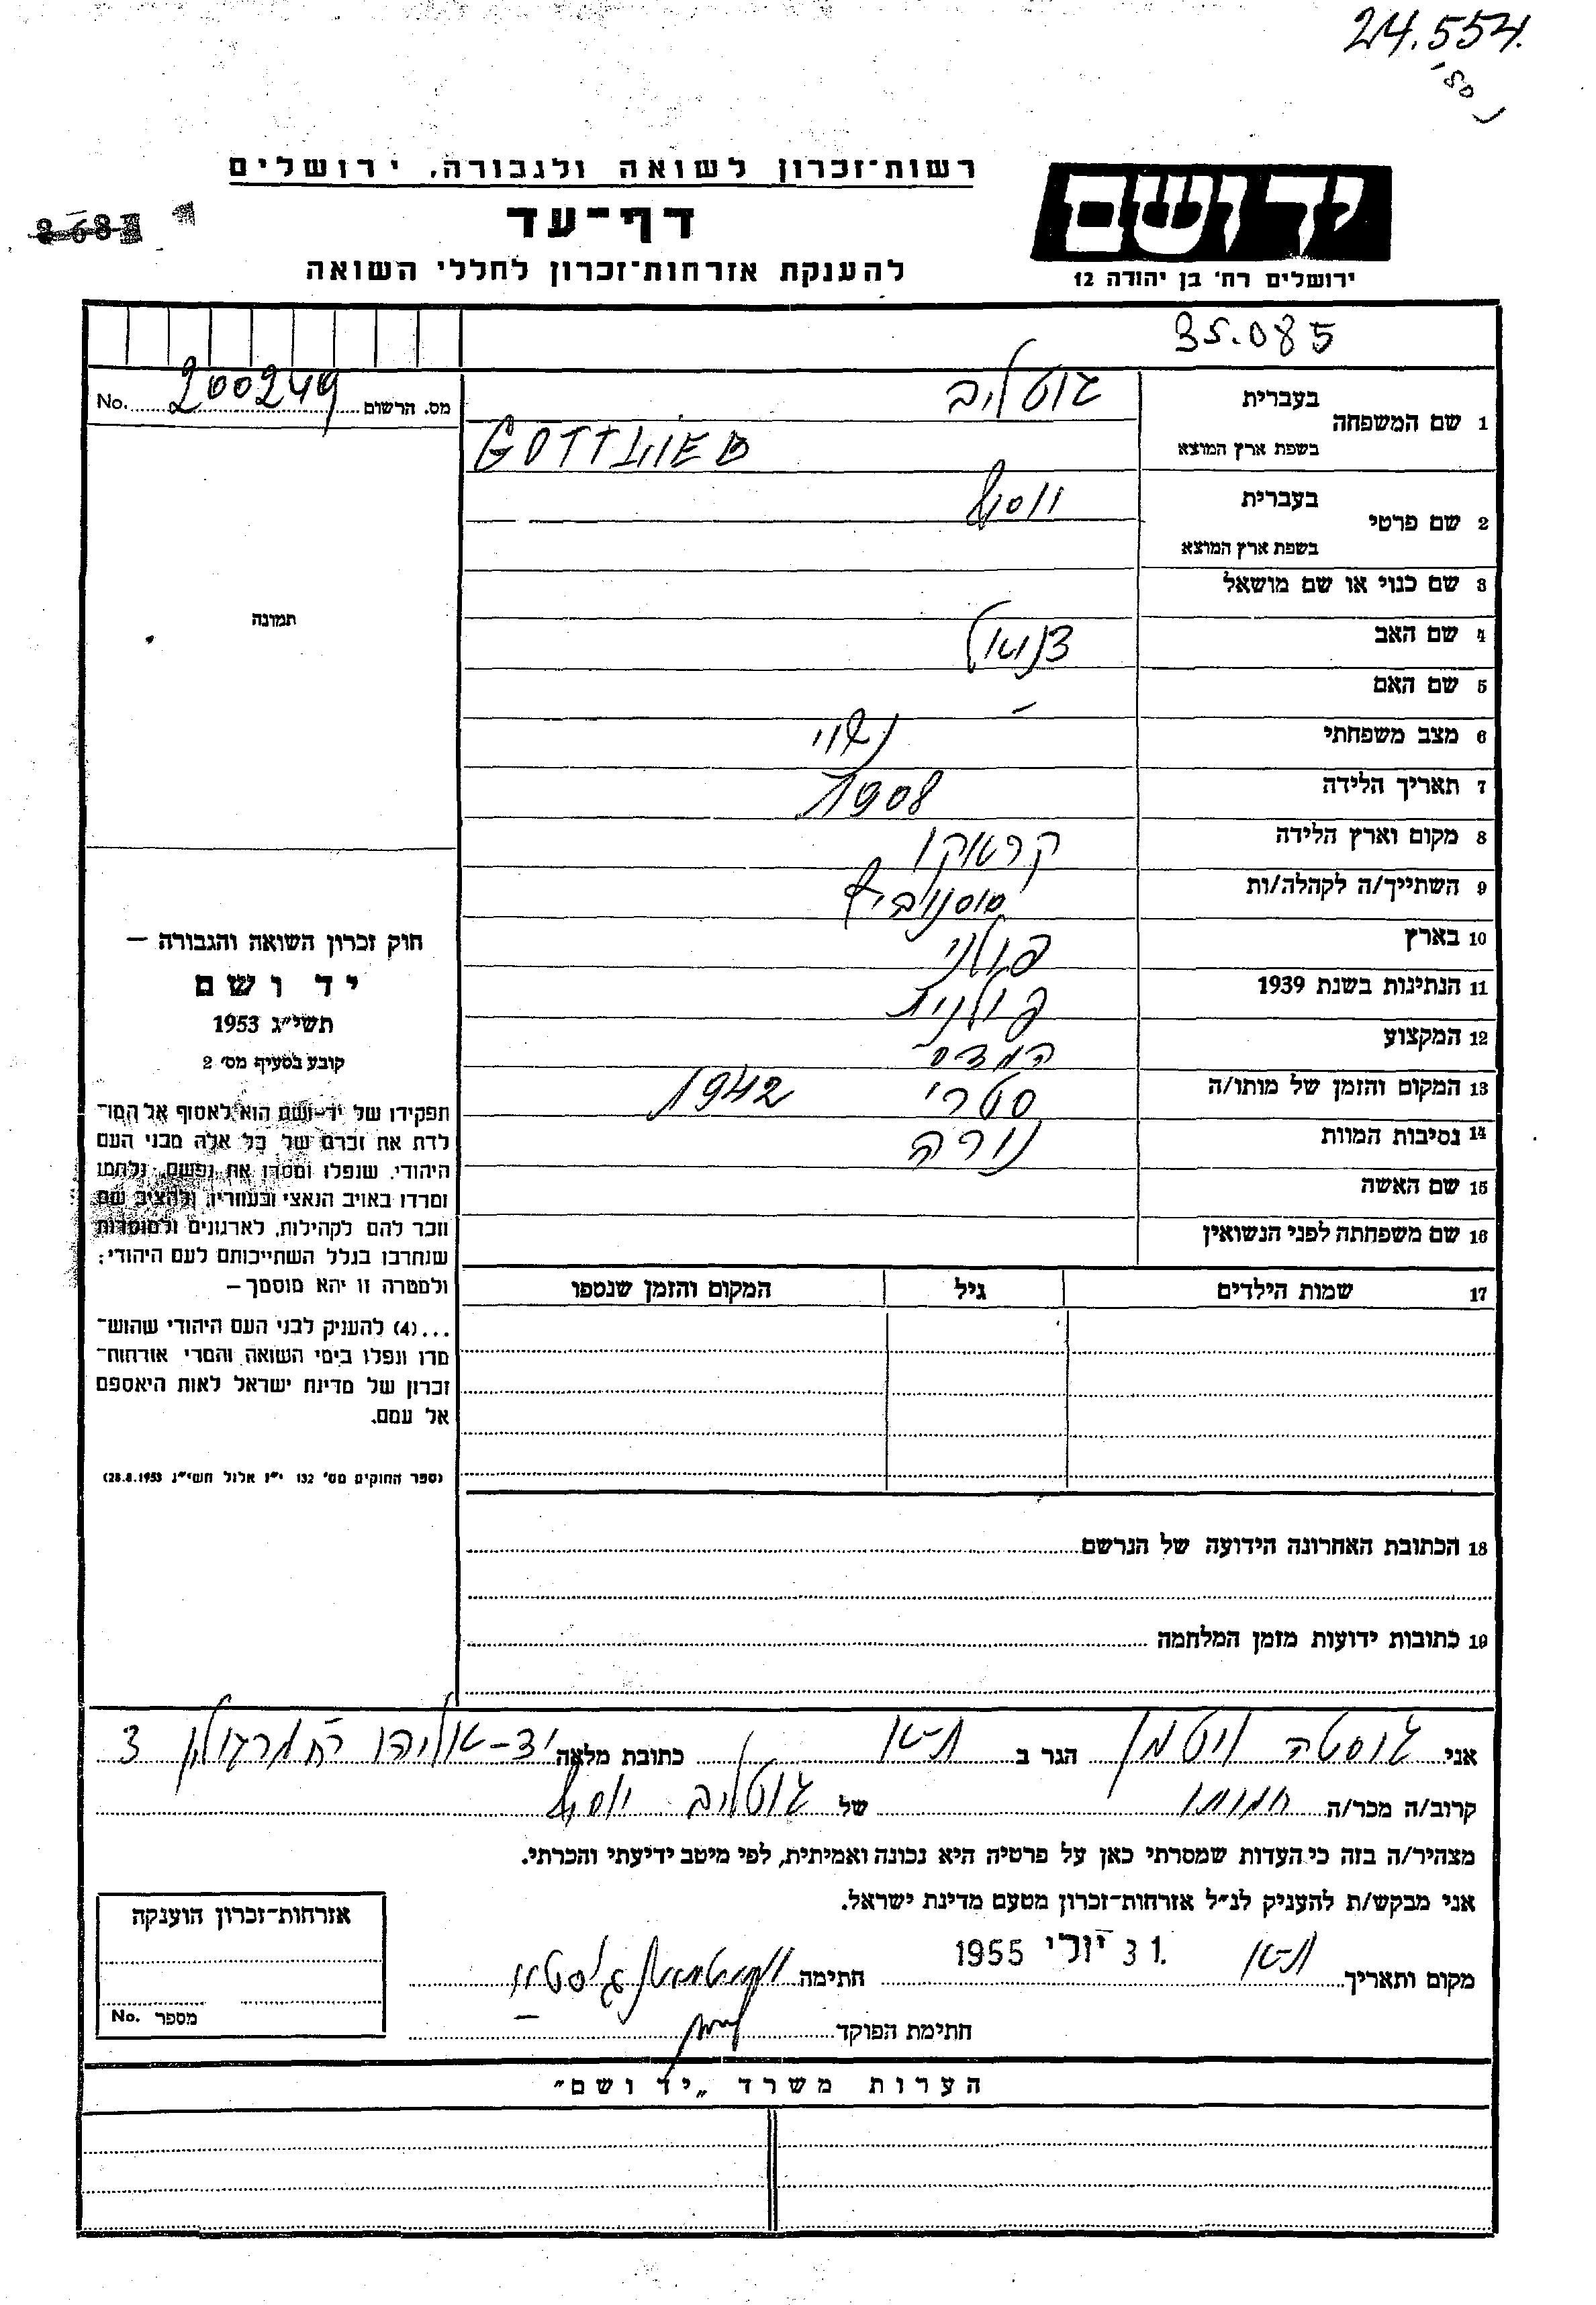 24.554.
רשות־זכרון לשואה ולגבורה, ירושלים
יד ושם
דף־עד
להענקת אזרחות־זכרון לחללי השואה
ירושלים רח' בן יהודה 12
35.085
No. 200249 מס. הרשום
1 שם המשפחה בעברית גוטליב
בשפת ארץ המוצא GOTTLIEB
2 שם פרטי בעברית יוסף
בשפת ארץ המוצא
3 שם כנוי או שם מושאל
תמונה
4 שם האב
5 שם האם –
6 מצב משפחתי נשוי
7 תאריך הלידה 1908
8 מקום וארץ הלידה קראקו
9 השתייך/ה לקהלה/ות סוסנוביץ
10 בארץ פולני
11 הנתינות בשנת 1939 פולנית
12 המקצוע
13 המקום והזמן של מותו/ה סטרי 1942
14 נסיבות המוות נורה
15 שם האשה
16 שם משפחתה לפני הנשואין
17 שמות הילדים גיל המקום והזמן שנספו
חוק זכרון השואה והגבורה –
יד ושם
תשי"ג 1953
קובע בסעיף מס' 2
תפקידו של יד־ושם הוא לאסוף אל המו־
לדת את זכרם של כל אלה מבני העם
היהודי, שנפלו ומסרו את נפשם, נלחמו
ומרדו באויב הנאצי ובעוזריו, ולהציב שם
וזכר להם לקהילות, לארגונים ולמוסדות
שנחרבו בגלל השתייכותם לעם היהודי;
ולמטרה זו יהא מוסמך –
...(4) להעניק לבני העם היהודי שהוש־
מדו ונפלו בימי השואה והמרי אזרחות־
זכרון של מדינת ישראל לאות היאספם
אל עמם.
(ספר החוקים מס' 132 י"ז אלול תשי"ג 28.8.1953)
18 הכתובת האחרונה הידועה של הנרשם
19 כתובות ידועות מזמן המלחמה
אני גוסטה ויטמן הגר ב ת–א כתובת מלאה יד–אליהו רח מרגולין 3
קרוב/ה מכר/ה חמותו של גוטליב יוסף
מצהיר/ה בזה כי העדות שמסרתי כאן על פרטיה היא נכונה ואמיתית, לפי מיטב ידיעתי והכרתי.
אני מבקש/ת להעניק לנ"ל אזרחות־זכרון מטעם מדינת ישראל.
מקום ותאריך ת–א 31 יולי 1955 חתימה
חתימת הפוקד
אזרחות־זכרון הוענקה
No. מספר
הערות משרד „יד ושם"